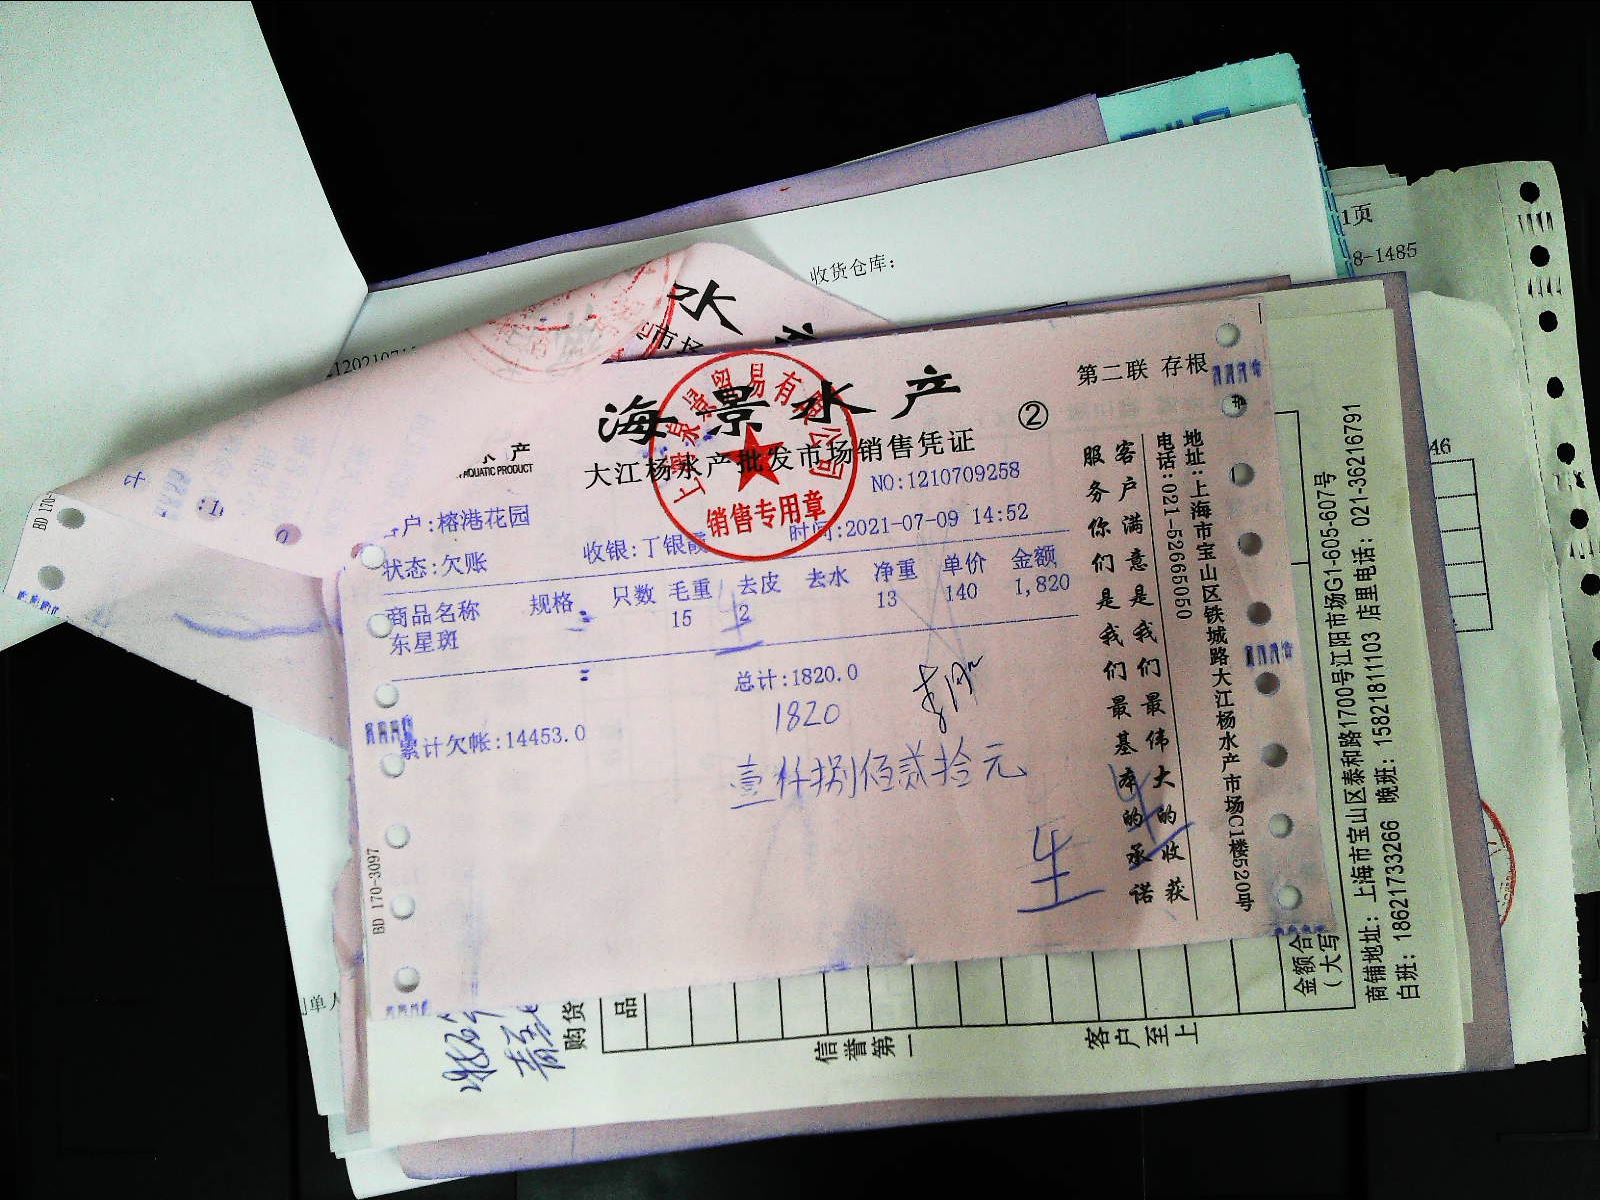 收货仓库：
1页
8-1485
水
市场
水产
AQUATIC PRODUCT
BD 170-
海景水产
第二联 存根
②
大江杨水产批发市场销售凭证
NO:1210709258
销售专用章
户:榕港花园
状态:欠账
收银:丁银霞
时间:2021-07-09 14:52
商品名称 规格 只数 毛重 去皮 去水 净重 单价 金额
东星斑 15 2 13 140 1,820
总计:1820.0
1820
累计欠帐:14453.0
壹仟捌佰贰拾元
生
BD 170-3097
客户满意是我们最伟大的收获
服务你们是我们最基本的承诺
地址:上海市宝山区铁城路大江杨水产市场C1楼520号
电话:021-52665050
46
购货
品
信誉第一
客户至上
金额合
(大写
商铺地址：上海市宝山区泰和路1700号江阳市场G1-605-607号
白班：18621733266 晚班：15821811103 店里电话：021-36216791